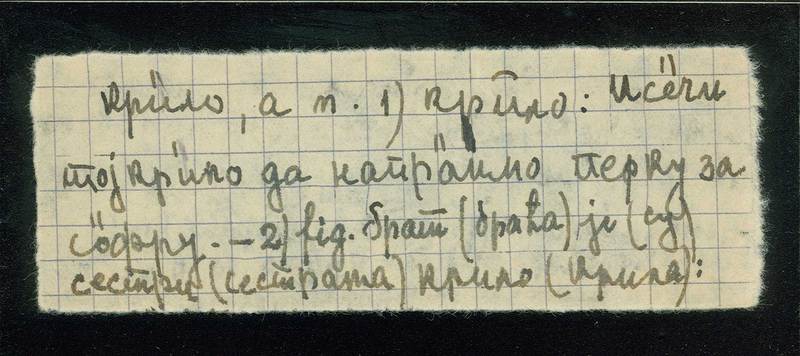 кри̏ло, а n. 1) кри̑ло: Исе̏чи
тој кри̏ло да напра̏имо перку за
со̏фру. – 2) fig. брат (браћа) је (су)
сестри (сестрама) крило (крила):